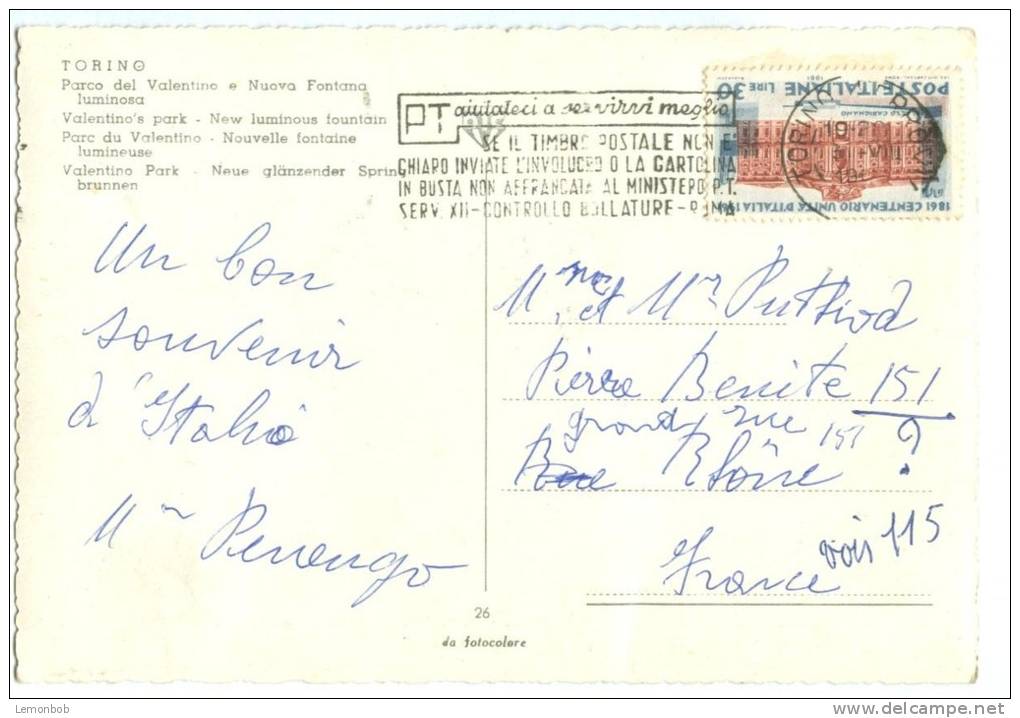 TORINO
Parco del Valentino e Nuova Fontana
luminosa
Valentino's park - New luminous fountain
Parc du Valentino - Nouvelle fontaine
lumineuse
Valentino Park - Neue glänzender Spring
brunnen
PT aiutateci a servirvi meglio
SE IL TIMBRO POSTALE NON E'
CHIARO INVIATE L'INVOLUCRO O LA CARTOLINA
IN BUSTA NON AFFRANCATA AL MINISTERO P.T.
SERV. XII - CONTROLLO BOLLATURE - ROMA
POSTE ITALIANE LIRE 30
1961
PALAZZO CARIGNANO
1861 CENTENARIO UNITÀ D'ITALIA 1961
TORINO
19
VII
Un bon
souvenir
d'Italie
Mme et Mr
Pierre Benite 151
grand rue 151
Rhône ?
France
voir 115
26
da fotocolore
Lemonbob
www.delcampe.net